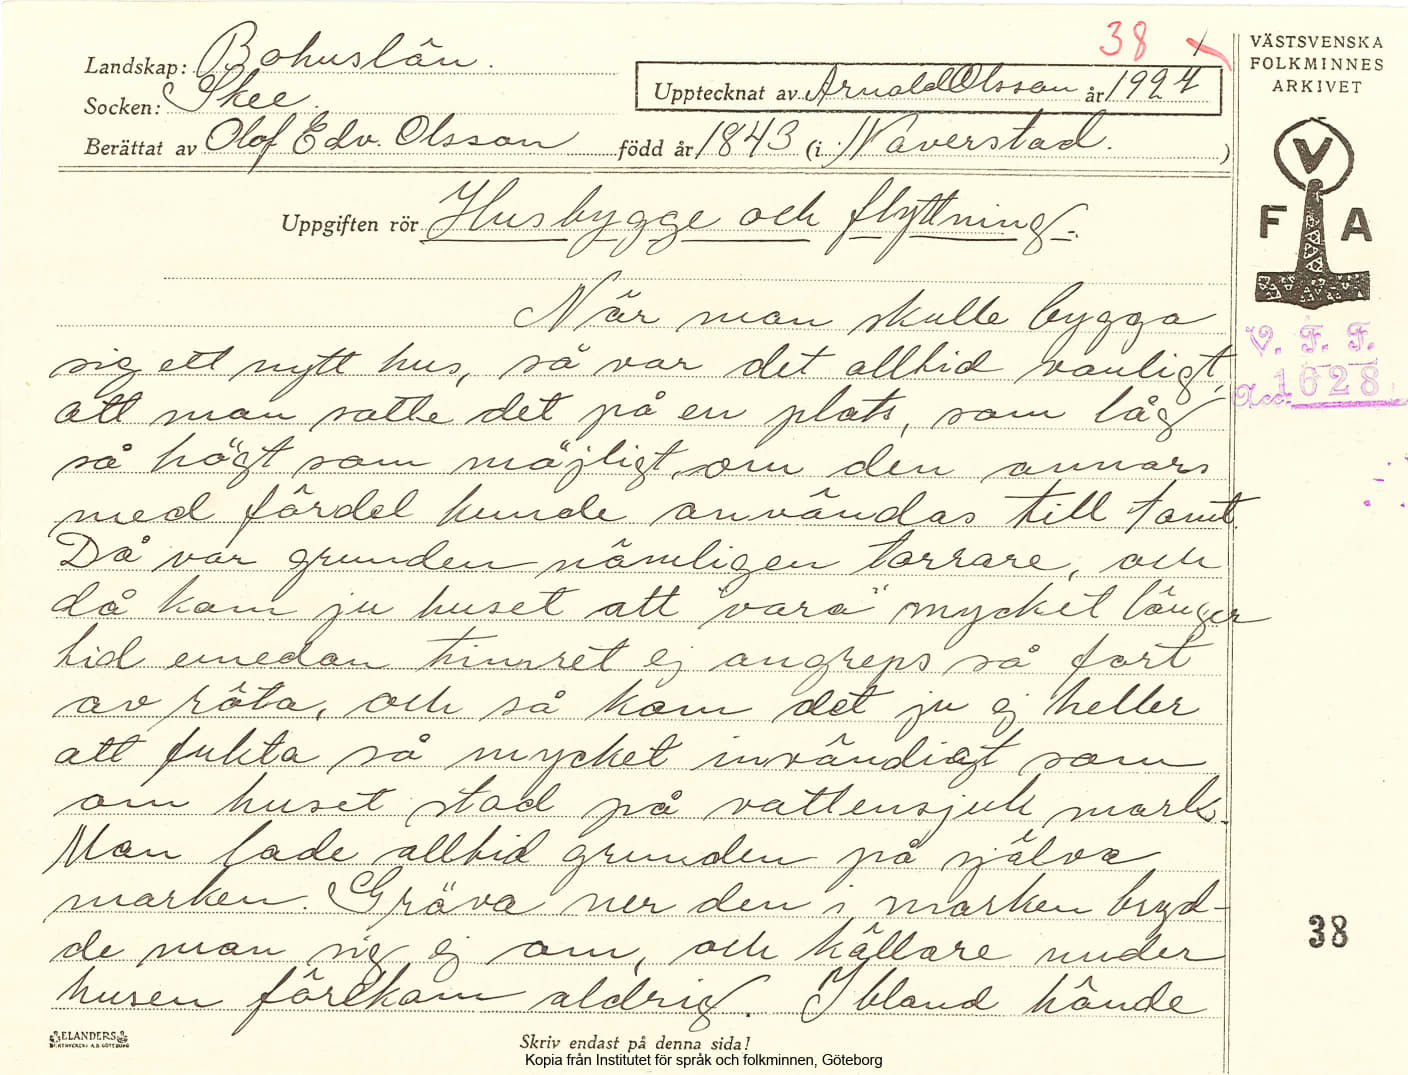 38 1
VÄSTSVENSKA
FOLKMINNES
ARKIVET
Landskap: Bohuslän.
Socken: Skee.
Upptecknat av Arnold Olsson år 1924
Berättat av Olof Edv. Olsson född år 1843 (i Naverstad.)
V
F A
Uppgiften rör Husbygge och flyttning.
När man skulle bygga
V. F. F.
sig ett nytt hus, så var det alltid vanligt,
Acc. 1628
att man satte det på en plats, som låg
så högt som möjligt, om den annars
med fördel kunde användas till tomt.
Då var grunden nämligen torrare, och
då kom ju huset att "vara" mycket länger
tid emedan timret ej angreps så fort
av röta, och så kom det ju ej heller
att fukta så mycket invändigt som
om huset stod på vattensjuk mark.
Man lade alltid grunden på själva
marken. Gräva ner den i marken bryd-
38
de man sig ej om, och källare under
husen förekom aldrig. Ibland hände
ELANDERS
BOKTRYCKERI A.B. GÖTEBORG
Skriv endast på denna sida!
Kopia från Institutet för språk och folkminnen, Göteborg